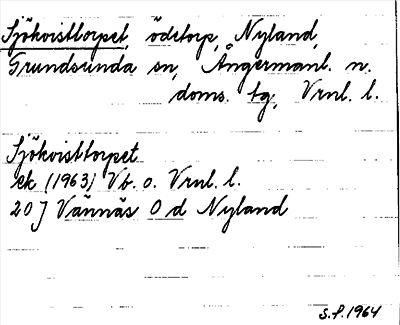 Sjökvisttorpet, ödetorp, Nyland,
Grundsunda sn, Ångermanl. n.
doms. tg., Vrnl. l.
Sjökvisttorpet
ek (1963) Vb. o. Vrnl. l.
20 J Vännäs O d Nyland
S.F. 1964